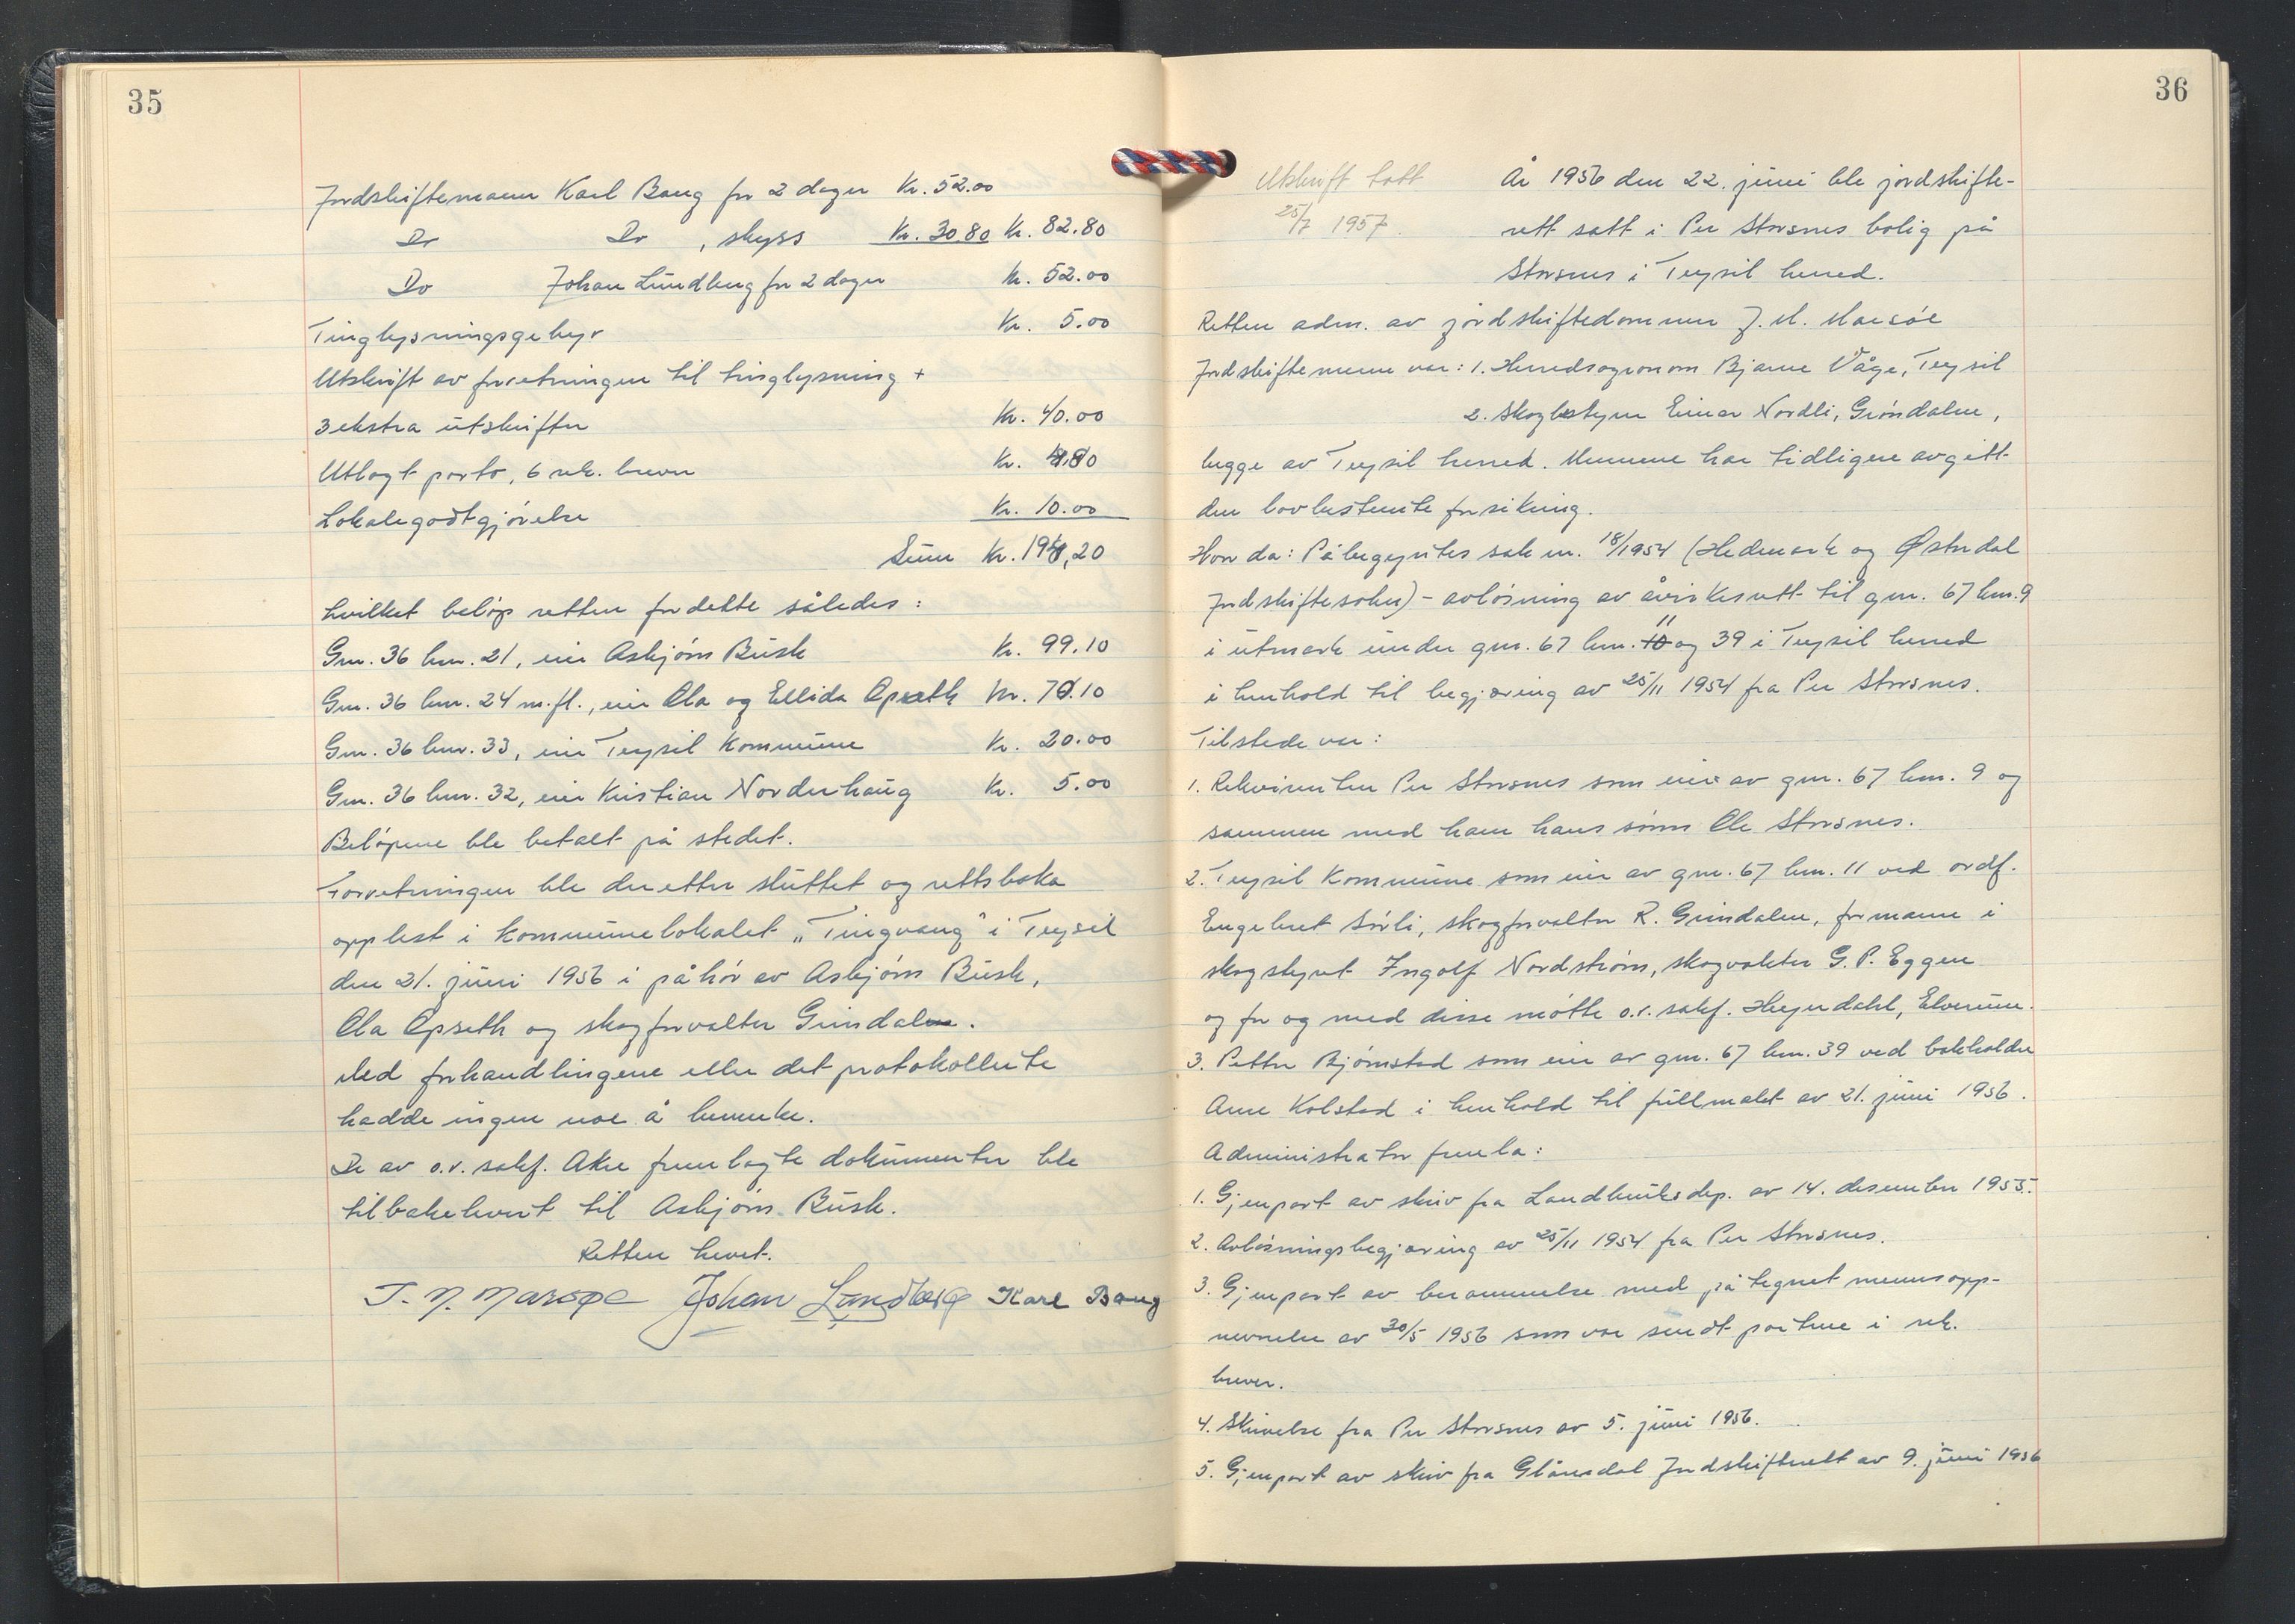 35
Jordskiftemann Karl Bang for 2 dager Kr. 52.00
Do Do , skyss Kr. 30.80 Kr. 82.80
Do Johan Lundberg for 2 dager Kr. 52.00
Tinglysningsgebyr Kr. 5.00
Utskrift av forretningen til tinglysning +
3 ekstra utskrifter Kr. 40.00
Utlagt porto, 6 rek. brever Kr.
Lokalegodtgjörelse Kr. 10.00
Sum Kr.
hvilket belöp retten fordelte således:
Gnr. 36 bnr. 21, eier Asbjörn Busk Kr. 99.10
Gnr. 36 bnr. 24 m.fl., eier Ola og Ellida Opseth Kr. 70.10
Gnr. 36 bnr. 33, eier Trysil kommune Kr. 20.00
Gnr. 36 bnr. 32, eier Kristian Norderhaug Kr. 5.00
Belöpene ble betalt på stedet.
Forretningen ble deretter sluttet og rettsboka
opplest i kommunelokalet „Tingvang" i Trysil
den 21. juni 1956 i påhör av Asbjörn Busk,
Ola Opseth og skogforvalter Grindalen.
Med forhandlingene eller det protokollerte
hadde ingen noe å bemerke.
De av o.r. sakf. Aker fremlagte dokumenter ble
tilbakelevert til Asbjörn Busk.
Retten hevet.
J. M. Marsøe Johan Lundberg Karl Bang
36
Utskrift tatt
25/7 1957.
År 1956 den 22. juni ble jordskifte-
rett satt i Per Storsnes bolig på
Storsnes i Trysil herred.
Retten adm. av jordskiftedommer J. M. Marsöe
Jordskiftemenn var: 1. Herredsagronom Bjarne Våge, Trysil
2. Skogbestyrer Einar Nordli, Gröndalen,
begge av Trysil herred. Mennene har tidligere avgitt
den lovbestemte forsikring.
Hvor da: Påbegyntes sak nr. 18/1954 (Hedmark og Østerdal
Jordskiftesoker) - avlösning av åvirkesrett til gnr. 67 bnr. 9
i utmark under gnr. 67 bnr. 10 11 og 39 i Trysil herred
i henhold til begjæring av 25/11 1954 fra Per Storsnes.
Tilstede var:
1. Rekvirenten Per Storsnes som eier av gnr. 67 bnr. 9 og
sammen med ham hans sönn Ole Storsnes.
2. Trysil Kommune som eier av gnr. 67 bnr. 11 ved ordf.
Engebret Sörli, skogforvalter R. Grindalen, formann i
skogstyret Ingolf Nordström, skogvokter G. P. Eggen
og for og med disse mötte o.r. sakf. Heyerdahl, Elverum.
3. Petter Björnstad som eier av gnr. 67 bnr. 39 ved bokholder
Arne Kolstad i henhold til fullmakt av 21. juni 1956.
Administrator fremla:
1. Gjenpart av skriv fra Landbruksdep. av 14. desember 1955.
2. Avlösningsbegjæring av 25/11 1954 fra Per Storsnes.
3. Gjenpart av berammelse med påtegnet mennsopp-
nevnelse av 30/5 1956 som var sendt partene i rek.
brever.
4. Skrivelse fra Per Storsnes av 5. juni 1956.
5. Gjenpart av skriv fra Glåmdal Jordskifterett av 9. juni 1956